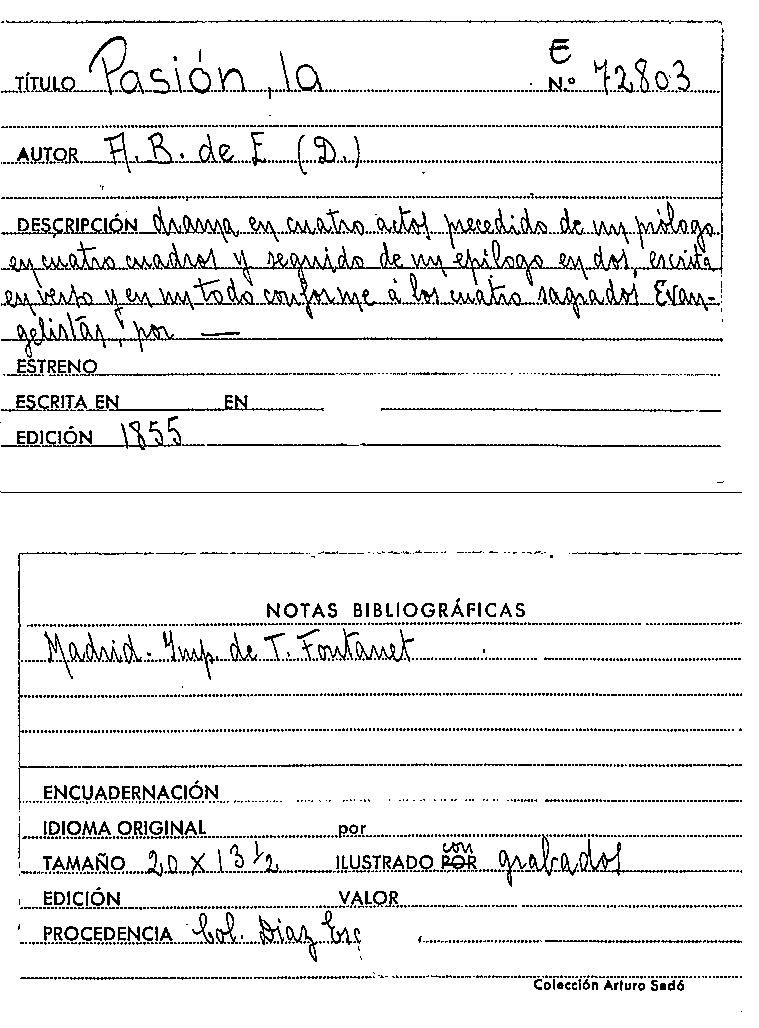 E
TÍTULO Pasión, la N.º 72803
AUTOR A. B. de E (D.)
DESCRIPCIÓN drama en cuatro actos precedido de un prólogo
en cuatro cuadros y seguido de un epílogo en dos, escrita
en verso y en un todo conforme á los cuatro sagrados Evan-
gelistas, por —
ESTRENO
ESCRITA EN EN
EDICIÓN 1855
NOTAS BIBLIOGRÁFICAS
Madrid. Imp. de T. Fontanet
ENCUADERNACIÓN
IDIOMA ORIGINAL por
con
TAMAÑO 20 x 13 ½ ILUSTRADO POR grabados
EDICIÓN VALOR
PROCEDENCIA Col. Diaz Esc
Colección Arturo Sedó